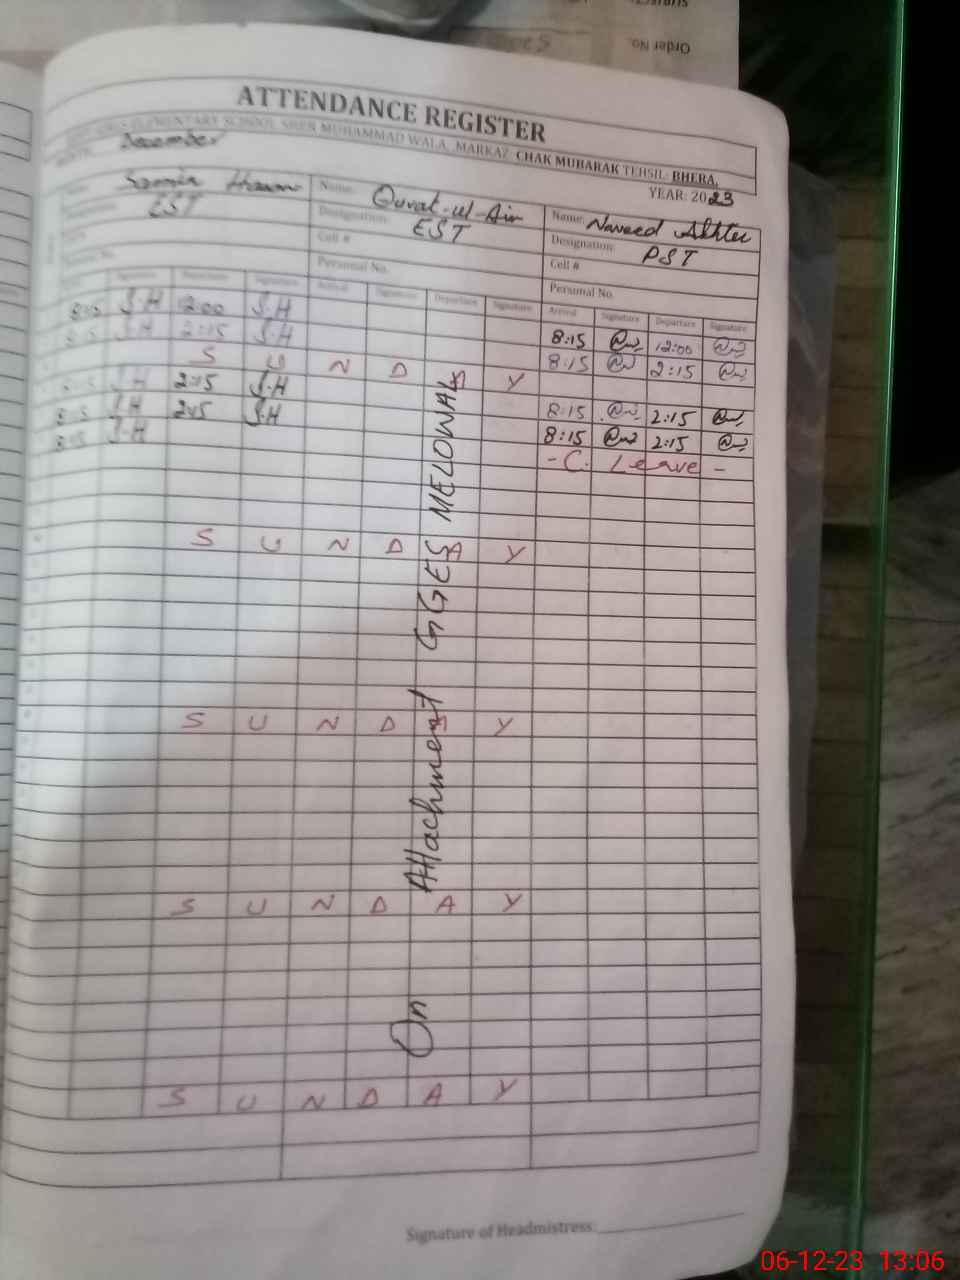 Order No.
ATTENDANCE REGISTER
ELEMENTARY SCHOOL SHER MUHAMMAD WALA, MARKAZ CHAK MUBARAK TEHSIL: BHERA,
December
YEAR: 2023
Name: Qurat-ul-Ain
Name: Naveed Akhter
EST
Designation: EST
Designation: PST
Cell #
Cell #
Personal No.
Personal No.
Arrival Signature Departure Signature
Arrival Signature Departure Signature
8:15 S.H 12:00 S.H
8:15 12:00
8:15 S.H 2:15 S.H
8:15 2:15
S U N D A Y
8:15 S.H 2:15 S.H
8:15 2:15
8:15 S.H 2:15 S.H
8:15 2:15
8:15 S.H
- C. Leave -
S U N D A Y
S U N D A Y
S U N D A Y
S U N D A Y
On Attachment GGES MELOWAL
Signature of Headmistress:
06-12-23 13:06